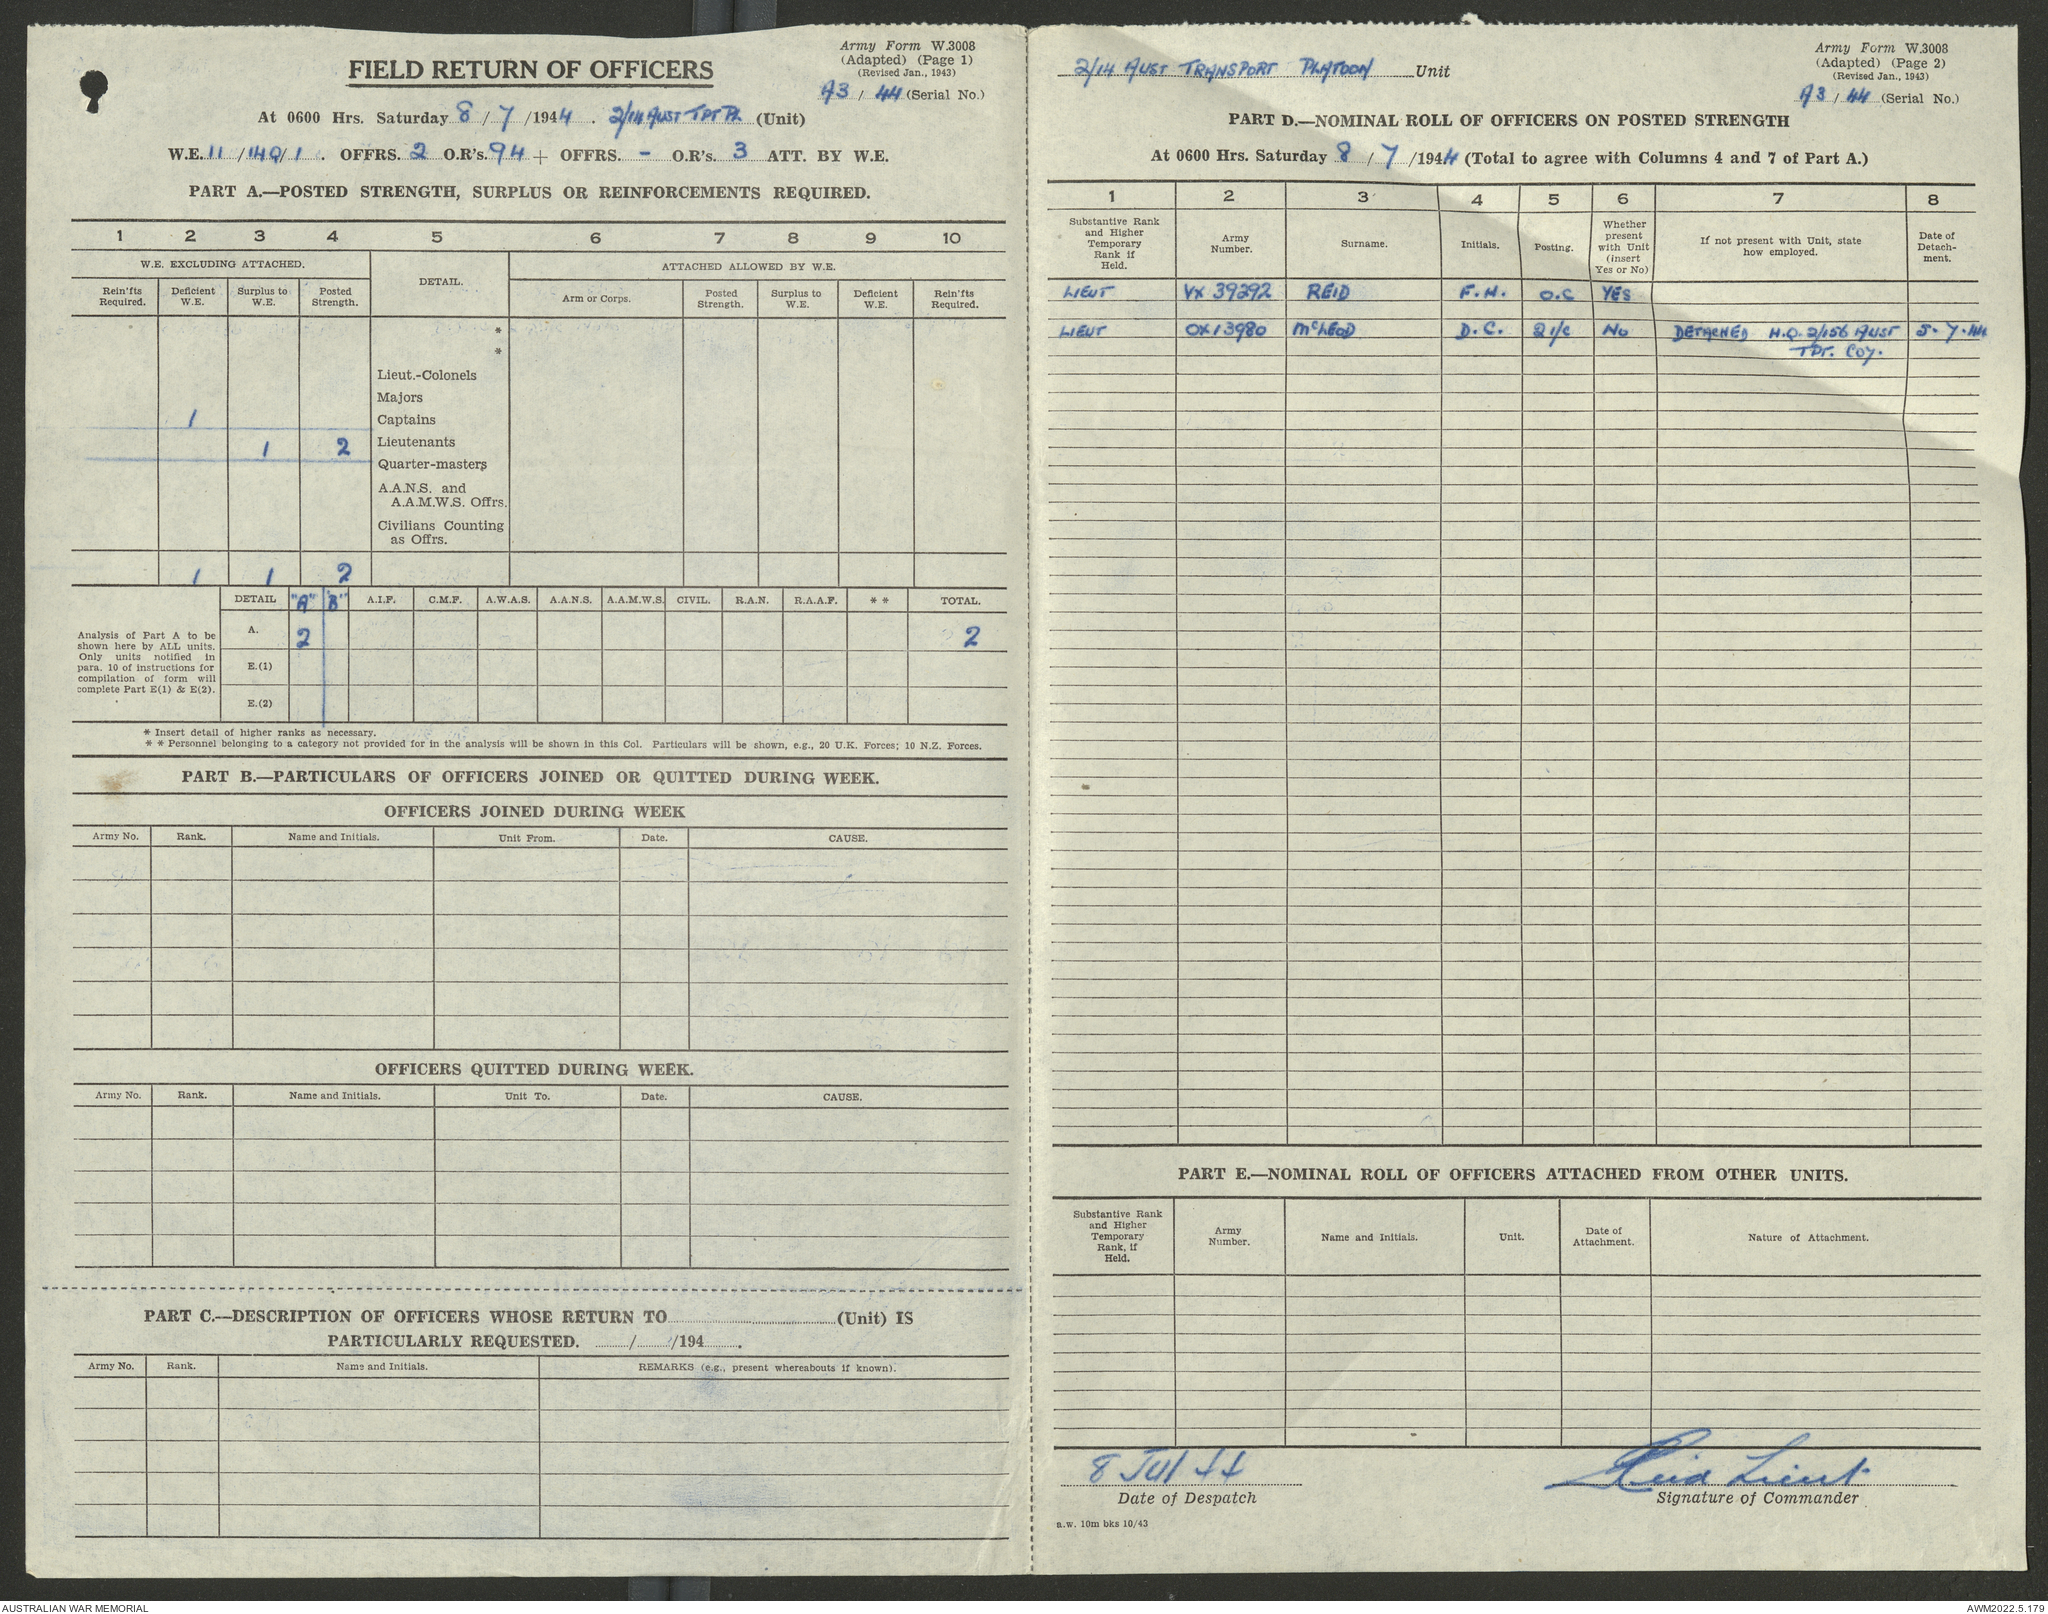 Army Form W.3008
(Adapted) (Page 1)
(Revised Jan., 1943)
FIELD RETURN OF OFFICERS
A3 / 44 (Serial No.)
At 0600 Hrs. Saturday 8 / 7 / 1944 . 2/14 AUST TPT PL (Unit)
W.E. 11 / 140 / 1 . OFFRS. 2 O.R's. 94 + OFFRS. - O.R's. 3 ATT. BY W.E.
PART A.—POSTED STRENGTH, SURPLUS OR REINFORCEMENTS REQUIRED.
1 2 3 4 5 6 7 8 9 10
W.E. EXCLUDING ATTACHED. DETAIL. ATTACHED ALLOWED BY W.E.
Rein'fts Required. Deficient W.E. Surplus to W.E. Posted Strength. Arm or Corps. Posted Strength. Surplus to W.E. Deficient W.E. Rein'fts Required.
*
*
Lieut.-Colonels
Majors
1 Captains
1 2 Lieutenants
Quarter-masters
A.A.N.S. and
A.A.M.W.S. Offrs.
Civilians Counting
as Offrs.
1 1 2
DETAIL "A" "B" A.I.F. C.M.F. A.W.A.S. A.A.N.S. A.A.M.W.S. CIVIL. R.A.N. R.A.A.F. * * TOTAL.
Analysis of Part A to be
shown here by ALL units.
Only units notified in
para. 10 of instructions for
compilation of form will
complete Part E(1) & E(2).
A. 2 2
E.(1)
E.(2)
* Insert detail of higher ranks as necessary.
* * Personnel belonging to a category not provided for in the analysis will be shown in this Col. Particulars will be shown, e.g., 20 U.K. Forces; 10 N.Z. Forces.
PART B.—PARTICULARS OF OFFICERS JOINED OR QUITTED DURING WEEK.
OFFICERS JOINED DURING WEEK
Army No. Rank. Name and Initials. Unit From. Date. CAUSE.
OFFICERS QUITTED DURING WEEK.
Army No. Rank. Name and Initials. Unit To. Date. CAUSE.
PART C.—DESCRIPTION OF OFFICERS WHOSE RETURN TO (Unit) IS
PARTICULARLY REQUESTED. / /194 .
Army No. Rank. Name and Initials. REMARKS (e.g., present whereabouts if known).
Army Form W.3008
(Adapted) (Page 2)
(Revised Jan., 1943)
2/14 AUST TRANSPORT PLATOON Unit
A3 / 44 (Serial No.)
PART D.—NOMINAL ROLL OF OFFICERS ON POSTED STRENGTH
At 0600 Hrs. Saturday 8 / 7 /1944 (Total to agree with Columns 4 and 7 of Part A.)
1 2 3 4 5 6 7 8
Substantive Rank and Higher Temporary Rank if Held. Army Number. Surname. Initials. Posting. Whether present with Unit (insert Yes or No) If not present with Unit, state how employed. Date of Detach-ment.
LIEUT VX 39292 REID F.H. O.C YES
LIEUT OX13980 McLEOD D.C. 2 i/c No DETACHED H.Q. 2/156 AUST 5.7.44
TPT. COY.
PART E.—NOMINAL ROLL OF OFFICERS ATTACHED FROM OTHER UNITS.
Substantive Rank and Higher Temporary Rank, if Held. Army Number. Name and Initials. Unit. Date of Attachment. Nature of Attachment.
8 Jul 44 Reid Lieut
Date of Despatch Signature of Commander
a.w. 10m bks 10/43
AUSTRALIAN WAR MEMORIAL AWM2022.5.179